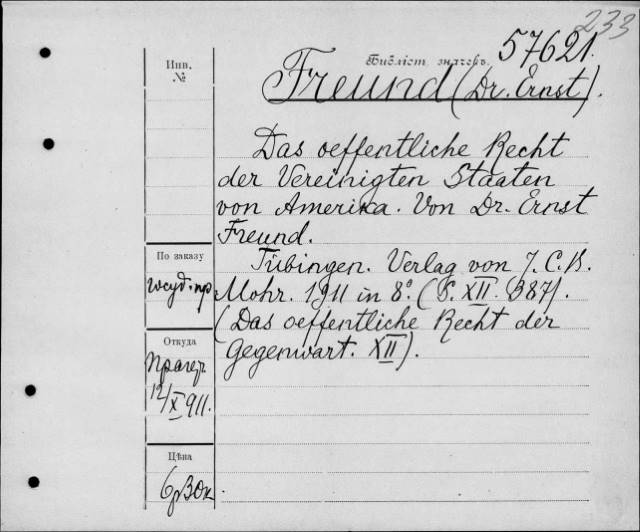 233
Библіот. значекъ.
57621.
Инв.
№
Freund (Dr. Ernst).
Das oeffentliche Recht
der Vereinigten Staaten
von Amerika. Von Dr. Ernst
Freund.
По заказу
Tübingen. Verlag von J. C. B.
Mohr. 1911 in 8º. (S. XII. 387).
(Das oeffentliche Recht der
Gegenwart. XII).
Откуда
12/X 911.
Цѣна
6р30к.